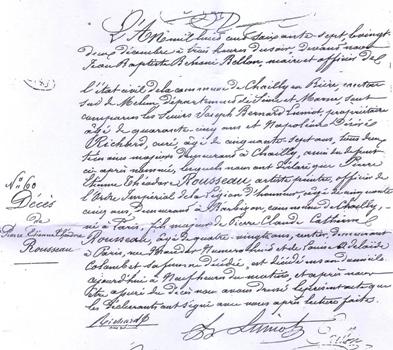 L'An mil huit cent soixante sept le vingt
deux décembre à trois heures du soir, devant nous
Jean Baptiste Bellon, maire et officier de
l'état civil de la commune de Chailly en Bière, canton
sud de Melun, département de Seine et Marne, sont
comparus les Sieurs Joseph Bernard Luniot, propriétaire
âgé de quarante cinq ans et Napoléon
Richard, âgé de cinquante sept ans, tous deux
témoins majeurs demeurant à Chailly, amis du défunt
ci après nommé, lesquels nous ont déclaré que Pierre
Etienne Théodore Rousseau, artiste peintre, officier de
l'Ordre Impérial de la Légion d'honneur, âgé de cinquante
cinq ans, demeurant à Barbizon, commune de Chailly,
né à Paris, fils majeur de Pierre Claude Catherine
Rousseau, âgé de quatre-vingt ans, rentier, demeurant
à Paris, rue et de Louise Adelaïde
Colombet sa femme décédée, est décédé en son domicile
aujourd'hui à neuf heures du matin, et après nous
être assuré du décès nous avons dressé le présent acte que
les déclarants ont signé avec nous après lecture faite.
Richard
Luniot
Bellon
No 60
Décès
de
Pierre Etienne Théodore
Rousseau